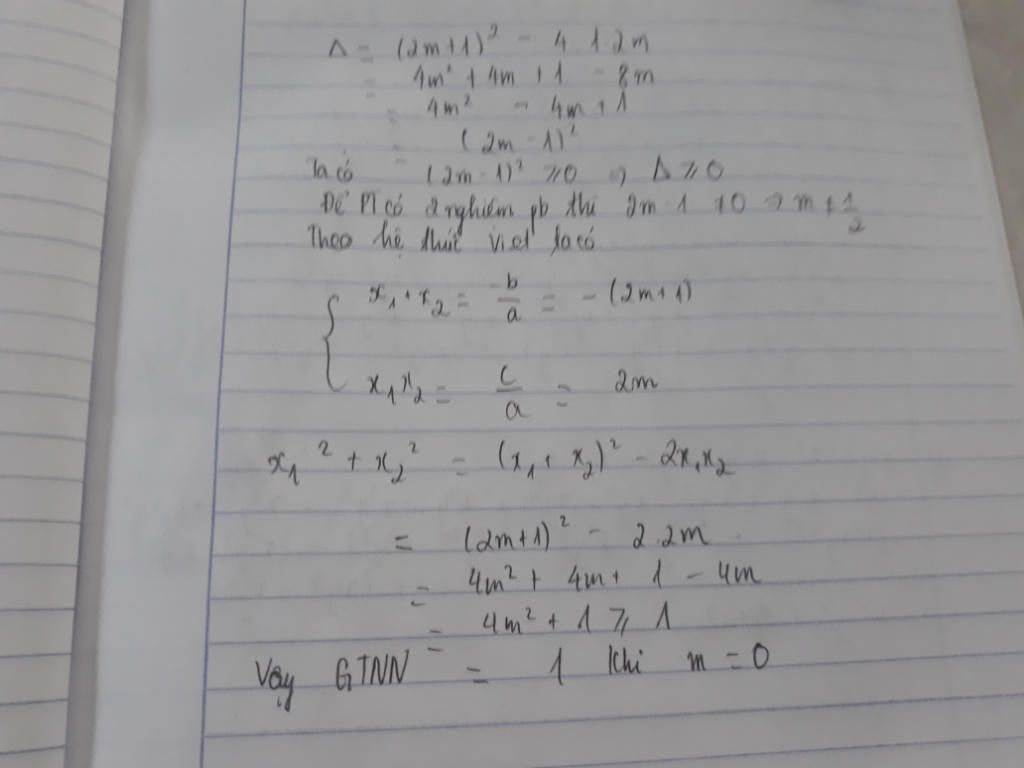 Δ = (2m+1)² - 4.1.2m
= 4m² + 4m + 1 - 8m
= 4m² - 4m + 1
= (2m - 1)²
Ta có (2m - 1)² ⩾ 0 => Δ ⩾ 0
Để PT có 2 nghiệm pb thì 2m - 1 ≠ 0 => m ≠ 1/2
Theo hệ thức viet ta có
{ x₁ + x₂ = -b/a = - (2m+1)
x₁x₂ = c/a = 2m
x₁² + x₂² = (x₁ + x₂)² - 2x₁x₂
= (2m+1)² - 2.2m
= 4m² + 4m + 1 - 4m
= 4m² + 1 ⩾ 1
Vậy GTNN = 1 khi m = 0